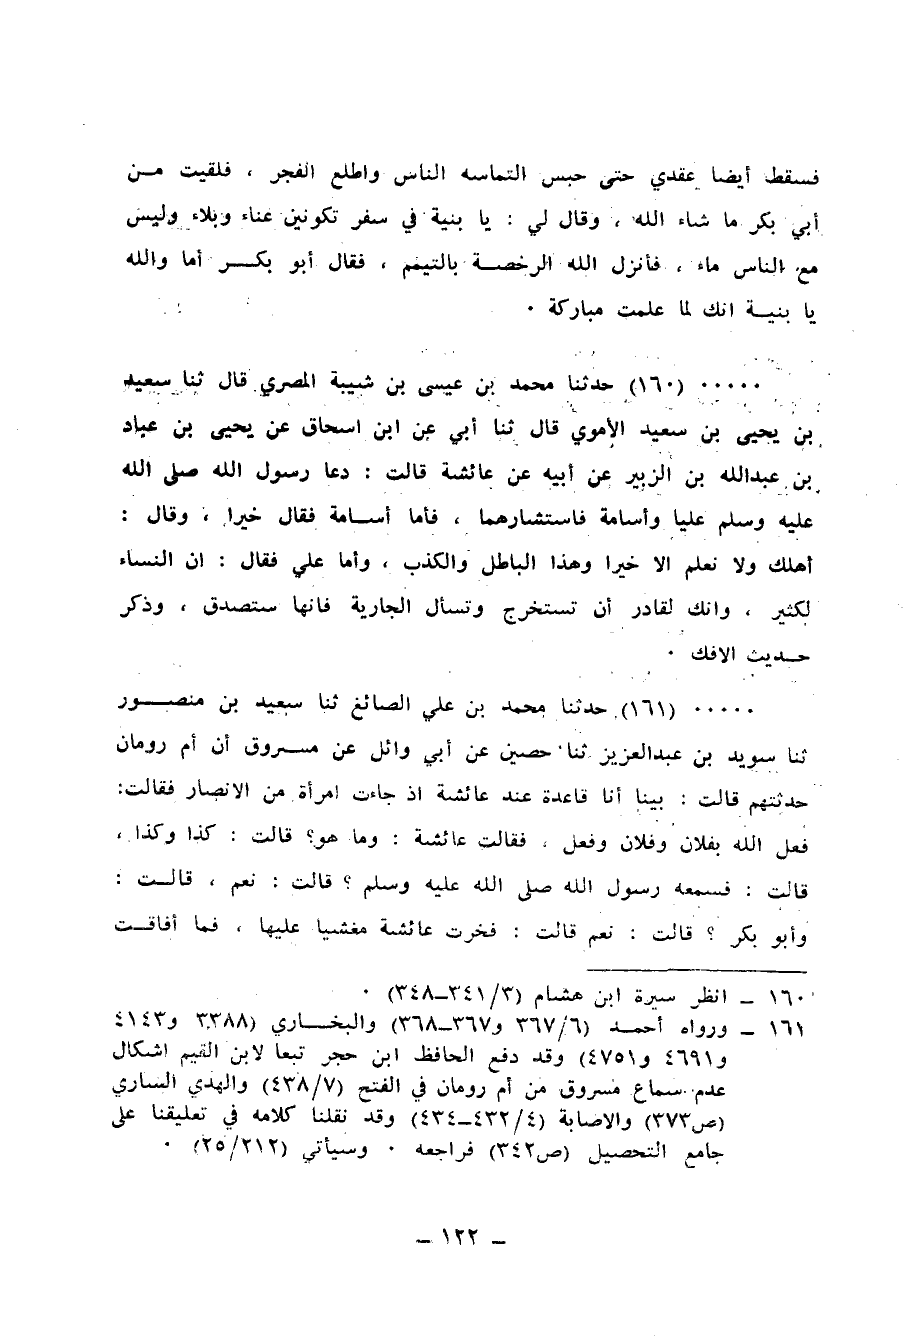 فسقط أيضا عقدي حتى حبس التماسه الناس واطلع الفجر ، فلقيت مـن
أبي بكر ما شاء الله ، وقال لي : يا بنية في سفر تكونين عناء وبلاء وليس
مع الناس ماء ، فأنزل الله الرخصــة بالتيمم ، فقال أبو بكــر أما والله
يا بنيــة انك لما علمت مباركة ٠
٠٠٠٠٠ (١٦٠) حدثنا محمد بن عيسى بن شيبة المصري قال ثنا سعيد
بن يحيى بن سعيد الأموي قال ثنا أبي عن ابن اسحاق عن يحيى بن عباد
بن عبدالله بن الزبير عن أبيه عن عائشة قالت : دعا رسول الله صلى الله
عليه وسلم عليا وأسامة فاستشارهما ، فأما أســامة فقال خيرا ، وقال :
أهلك ولا نعلم الا خيرا وهذا الباطل والكذب ، وأما علي فقال : ان النساء
لكثير ، وانك لقادر أن تستخرج وتسأل الجارية فانها ستصدق ، وذكر
حــديث الافك ٠
٠٠٠٠٠ (١٦١) حدثنا محمد بن علي الصائغ ثنا سعيد بن منصــور
ثنا سويد بن عبدالعزيز ثنا حصين عن أبي وائل عن مسروق أن أم رومان
حدثتهم قالت : بينا أنا قاعدة عند عائشة اذ جاءت امرأة من الانصار فقالت:
فعل الله بفلان وفلان وفعل ، فقالت عائشة : وما هو؟ قالت : كذا وكذا ،
قالت : فسمعه رسول الله صلى الله عليه وسلم ؟ قالت : نعم ، قالــت :
وأبو بكر ؟ قالت : نعم قالت : فخرت عائشة مغشيا عليها ، فما أفاقــت
١٦٠ ـ انظر سيرة ابن هشام (٣/٣٤١ـ٣٤٨) ٠
١٦١ ـ ورواه أحمــد (٦/٣٦٧ و٣٦٧ـ٣٦٨) والبخــاري (٣٣٨٨ و٤١٤٣
و٤٦٩١ و٤٧٥١) وقد دفع الحافظ ابن حجر تبعا لابن القيم اشكال
عدم سماع مسروق من أم رومان في الفتح (٧/٤٣٨) والهدي الساري
(ص٣٧٣) والاصابة (٤/٤٣٢ـ٤٣٤) وقد نقلنا كلامه في تعليقنا على
جامع التحصيل (ص٣٤٢) فراجعه ٠ وسيأتي (٢٥/٢١٢) ٠
ـ ١٢٢ ـ